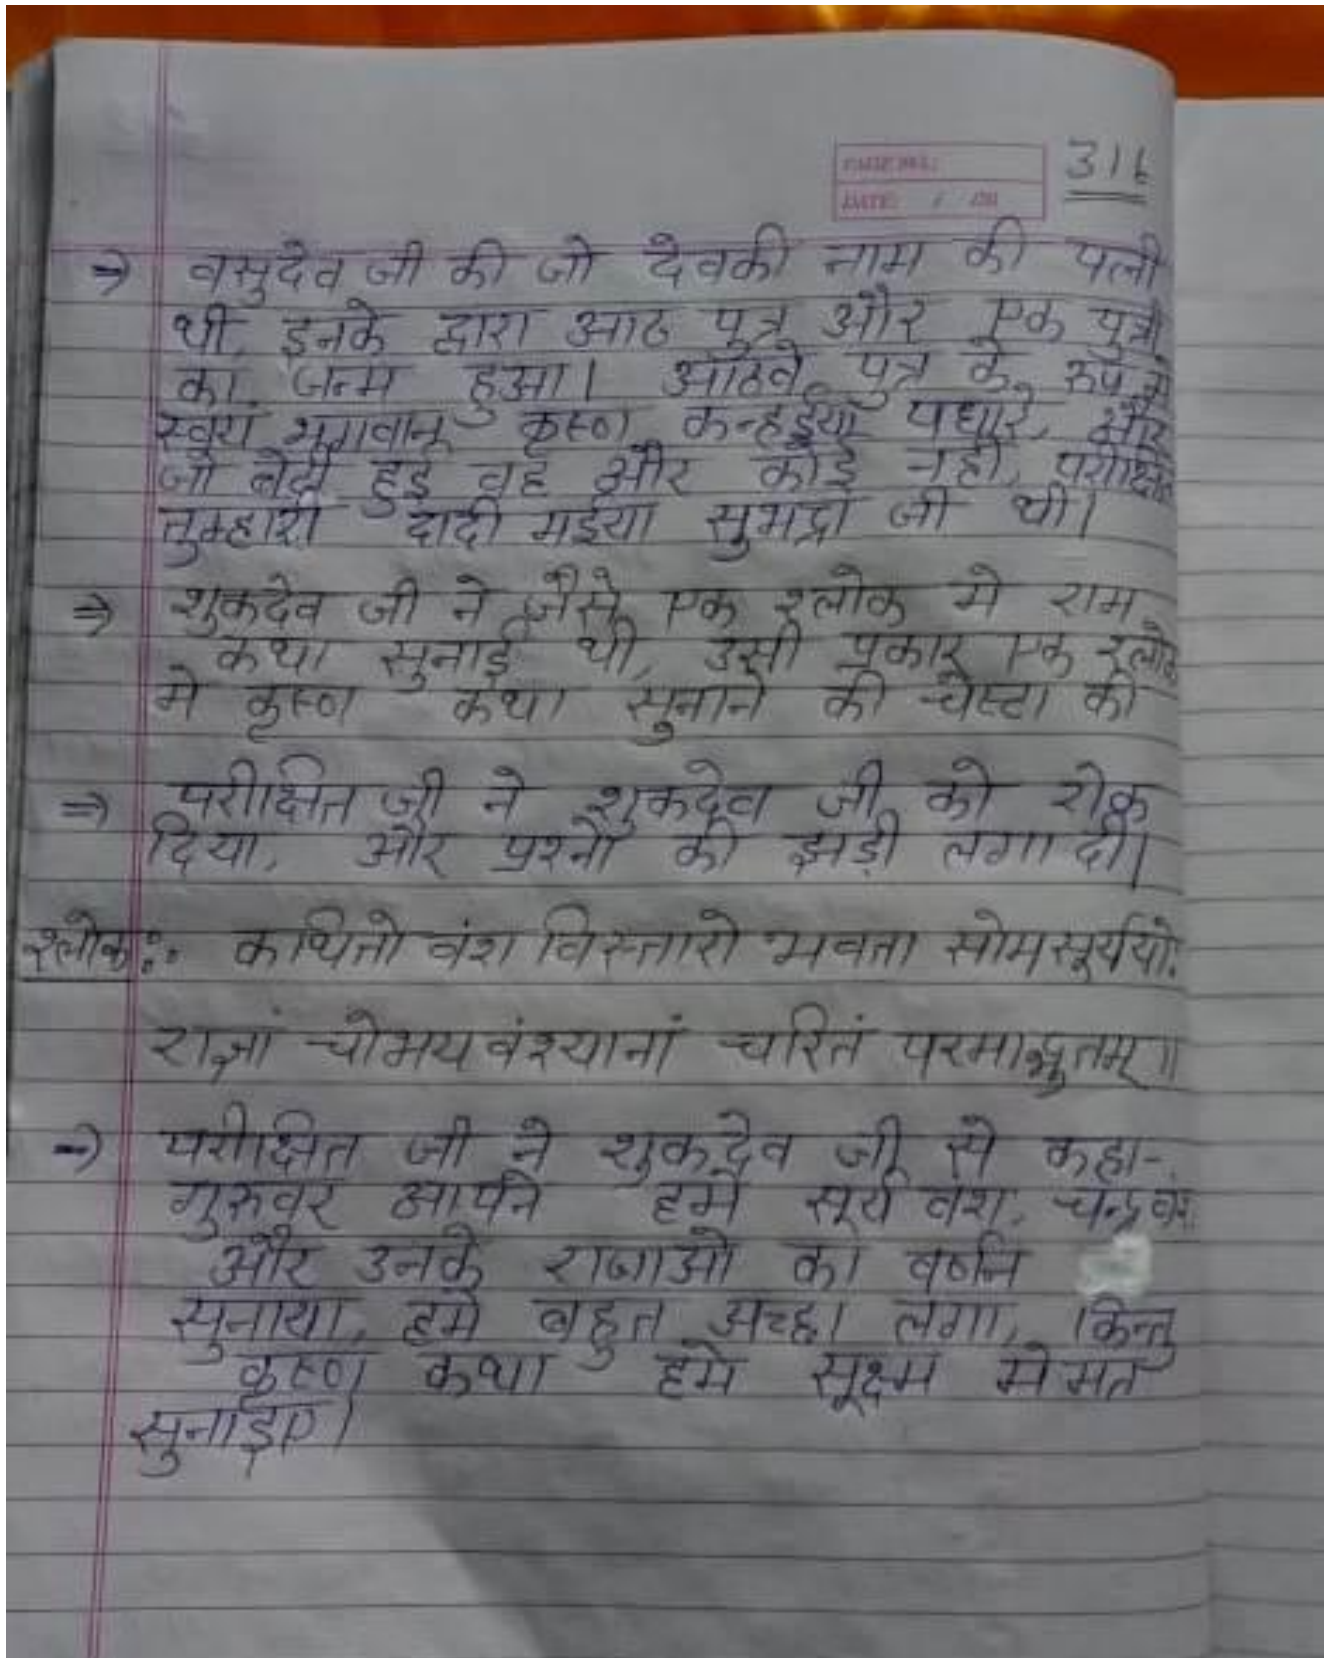 PAGE NO.:
DATE: / /20
316
⇒ वसुदेव जी की जो देवकी नाम की पत्नी
थी, इनके द्वारा आठ पुत्र और एक पुत्री
का जन्म हुआ। आठवे पुत्र के रूप मे
स्वयं भगवान कृष्ण कन्हईया पधारे, और
जो बेटी हुई वह और कोई नही, परीक्षित
तुम्हारी दादी मईया सुभद्रा जी थी।
⇒ शुकदेव जी ने जैसे एक श्लोक मे राम
कथा सुनाई थी, उसी प्रकार एक श्लोक
मे कृष्ण कथा सुनाने की चेस्टा की
⇒ परीक्षित जी ने शुकदेव जी को रोक
दिया, और प्रश्नो की झड़ी लगा दी।
श्लोकः- कथितो वंश विस्तारो भवता सोमसूर्ययोः
राज्ञां चोभय वंश्यानां चरितं परमाद्भुतम्॥
⇒ परीक्षित जी ने शुकदेव जी से कहा-
गुरुवर आपने हमे सूर्य वंश, चन्द्र वंश
और उनके राजाओ का वर्णन
सुनाया, हमे बहुत अच्छा लगा, किन्तु
कृष्ण कथा हमे सूक्ष्म मे मत
सुनाइए।